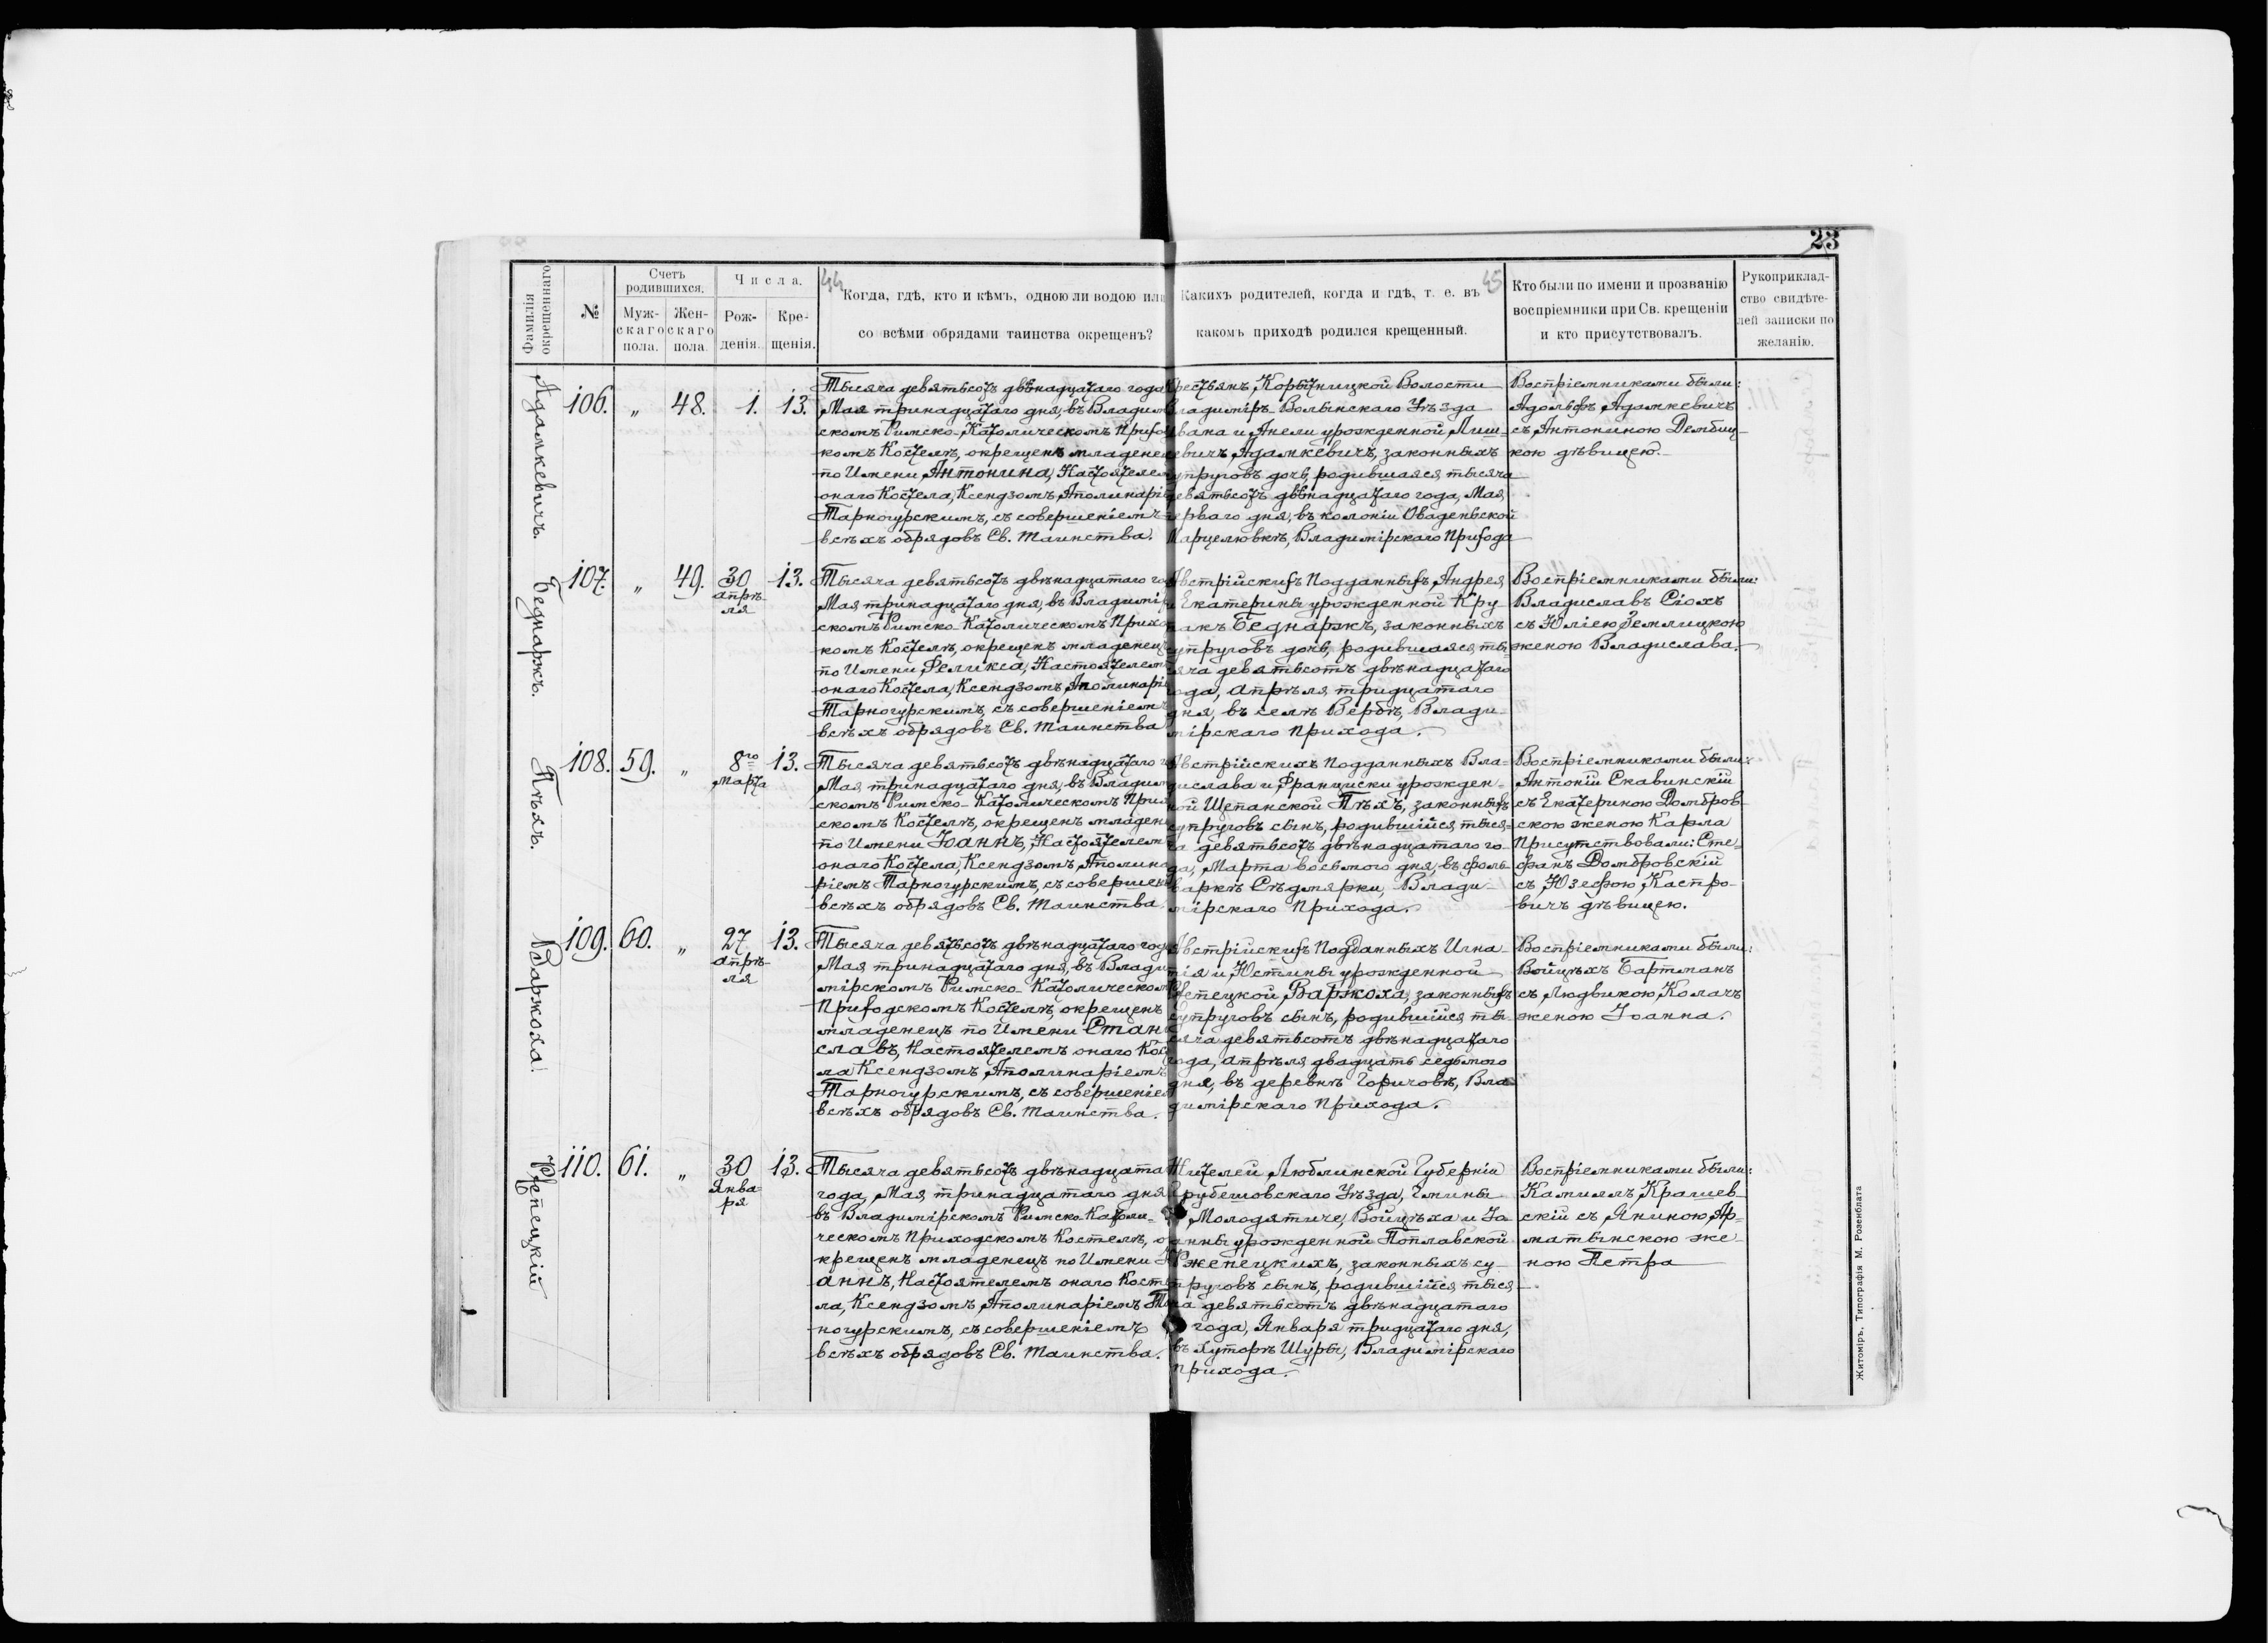 23
Фамилія окрещеннаго
№
Счетъ родившихся.
Мужскаго пола.
Женскаго пола.
Числа.
Рожденія.
Крещенія.
44
Когда, гдѣ, кто и кѣмъ, одною ли водою или
со всѣми обрядами таинства окрещенъ?
Какихъ родителей, когда и гдѣ, т. е. въ
45
какомъ приходѣ родился крещенный.
Кто были по имени и прозванію
воспріемники при Св. крещеніи
и кто присутствовалъ.
Рукоприклад-
ство свидѣте-
лей записки по
желанію.
Адамкевичъ.
106. „ 48. 1. 13.
Тысяча девятьсотъ двѣнадцатаго года
Мая тринадцатаго дня, въ Владимі
скомъ Римско-Католическомъ Прихо
комъ Костелѣ, окрещенъ младене
по Имени Антонина, Настоятелем
онаго Костела, Ксендзомъ Аполинарі
Тарногурскимъ, съ совершеніемъ
всѣхъ обрядовъ Св. Таинства.
крестьянъ Корытницкой Волости
Владиміръ-Волынскаго Уѣзда
Ивана и Анели урожденной Лиш-
кевичъ Адамкевичъ, законныхъ
супруговъ дочь, родившаяся тысяча
девятьсотъ двѣнадцатаго года, Мая
перваго дня, въ колоніи Оваденьской
Марцелювкѣ, Владимірскаго Прихода
Воспріемниками были:
Адольфъ Адамкевичъ
съ Антониною Дембиц-
кою дѣвицею.
Беднаржъ.
107. „ 49. 30 Апрѣ-
ля 13.
Тысяча девятьсотъ двѣнадцатаго го
Мая тринадцатаго дня, въ Владимір
скомъ Римско-Католическомъ Прихо
комъ Костелѣ, окрещенъ младенецъ
по Имени Феликса, Настоятелемъ
онаго Костела, Ксендзомъ Аполинарі
Тарногурскимъ, съ совершеніемъ
всѣхъ обрядовъ Св. Таинства
Австрійскихъ Подданныхъ Андрея
и Екатерины урожденной Кру-
пакъ Беднаржъ, законныхъ
супруговъ дочь, родившаяся ты-
сяча девятьсотъ двѣнадцатаго
года, Апрѣля тридцатаго
дня, въ селѣ Вербѣ, Влади-
мірскаго Прихода.
Воспріемниками были:
Владиславъ Сіохъ
съ Юліею Землицкою
женою Владислава.
Пѣхъ.
108. 59. „ 8го
Марта 13.
Тысяча девятьсотъ двѣнадцатаго г
Мая тринадцатаго дня, въ Владим
скомъ Римско-Католическомъ Прих
скомъ Костелѣ, окрещенъ младен
по Имени Іоаннъ, Настоятелем
онаго Костела, Ксендзомъ Аполина
ріемъ Тарногурскимъ, съ совершен
всѣхъ обрядовъ Св. Таинства
Австрійскихъ Подданныхъ Вла-
дислава и Франциски урожден-
ной Щепанской Пѣхъ, законныхъ
супруговъ сынъ, родившійся тыся-
ча девятьсотъ двѣнадцатаго го-
да, Марта восьмого дня, въ фоль-
варкѣ Сѣдмярки, Влади-
мірскаго Прихода.
Воспріемниками были:
Антоній Скавинскій
съ Екатериною Домбров-
скою женою Карла
Присутствовали: Сте-
фанъ Домбровскій
съ Юзефою Кастро-
вичъ дѣвицею.
Варжоха.
109. 60. „ 27
Апрѣ-
ля 13.
Тысяча девятьсотъ двѣнадцатаго года
Мая тринадцатаго дня, въ Влади
мірскомъ Римско-Католическом
Приходскомъ Костелѣ, окрещенъ
младенецъ по Имени Стани
славъ, Настоятелемъ онаго Кос
ла Ксендзомъ Аполинаріемъ
Тарногурскимъ, съ совершеніе
всѣхъ обрядовъ Св. Таинства.
Австрійскихъ Подданныхъ Игна-
тія и Юстины урожденной
Варжоха, законныхъ
супруговъ сынъ, родившійся ты-
сяча девятьсотъ двѣнадцатаго
года, Апрѣля двадцать седьмого
дня, въ деревнѣ Горичовѣ, Вла-
димірскаго Прихода.
Воспріемниками были:
Войцѣхъ Бартманъ
съ Людвикою Колачъ
женою Іоанна.
Ржепецкій
110. 61. „ 30
Янва-
ря 13.
Тысяча девятьсотъ двѣнадцата
года, Мая тринадцатаго дня
въ Владимірскомъ Римско-Католи-
ческомъ Приходскомъ Костелѣ, о
крещенъ младенецъ по Имени І
аннъ, Настоятелемъ онаго Косте
ла, Ксендзомъ Аполинаріемъ Та
ногурскимъ, съ совершеніемъ
всѣхъ обрядовъ Св. Таинства.
Жителей Люблинской Губерніи
Грубешовскаго Уѣзда, Гмины
Молодятиче, Войцѣха и Іо
анны урожденной Поплавской
Ржепецкихъ, законныхъ су-
пруговъ сынъ, родившійся тыся-
ча девятьсотъ двѣнадцатаго
года, Января тридцатаго дня,
въ хуторѣ Щуры, Владимірскаго
Прихода.
Воспріемниками были:
Камиллъ Крашев-
скій съ Яниною Яр-
матынскою же-
ною Петра
Житоміръ, Типографія М. Розенблата